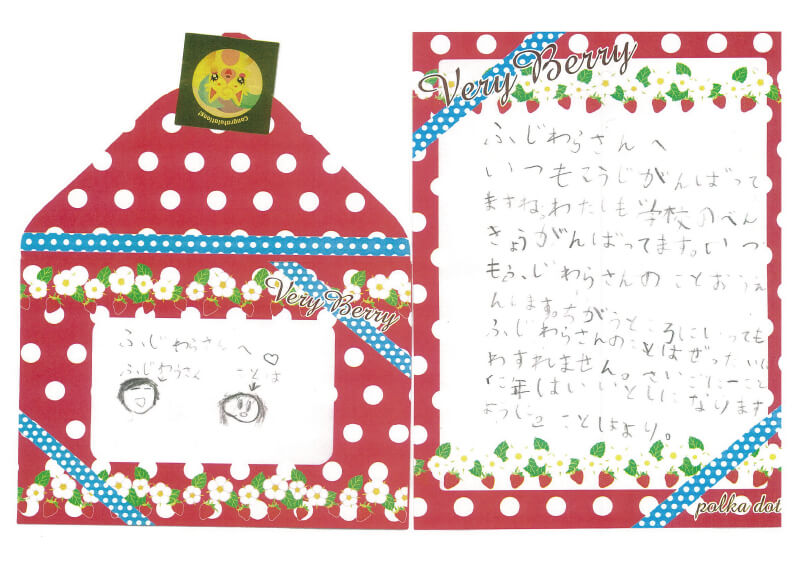 Congratulations!
Very Berry
ふじわらさんへ
ふじわらさん ことは
Very Berry
ふじわらさんへ
いつもこうじがんばって
ますね。わたしも学校のべん
きょうがんばってます。いつ
もふじわらさんのことおうえ
んします。ちがうところにいっても
ふじわらさんのことはぜったいに
わすれません。さいごに一こと
年はいいとしになります
ように ことはより。
polka dot